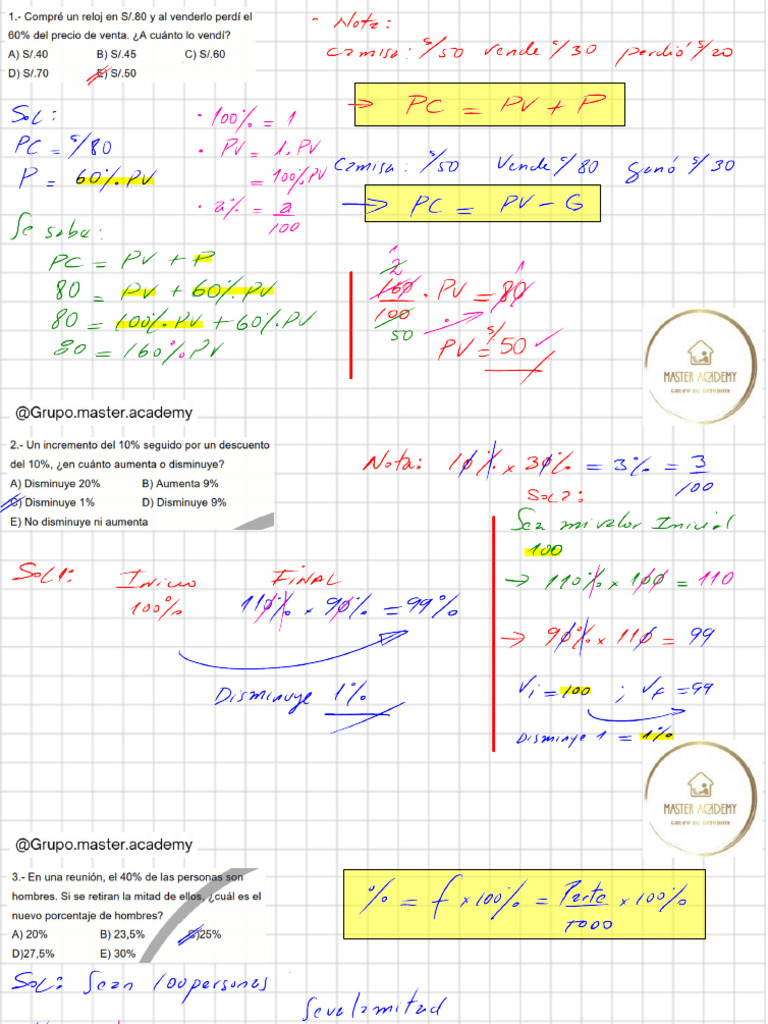 1.- Compré un reloj en S/.80 y al venderlo perdí el
60% del precio de venta. ¿A cuánto lo vendí?
A) S/.40 B) S/.45 C) S/.60
D) S/.70 E) S/.50
• Nota:
Camisa: S/50 vende S/30 perdió S/20
→ PC = PV + P
Camisa: S/50 Vende S/80 ganó S/30
→ PC = PV - G
Sol:
PC = S/80
P = 60%.PV
• 100% = 1
• PV = 1.PV
= 100%PV
• a% = a/100
Se sabe:
PC = PV + P
80 = PV + 60%.PV
80 = 100%.PV + 60%.PV
80 = 160%PV
1
2
160/100 . PV = 80 1
50
PV = S/.50 ✓
MASTER ACADEMY
GRUPO DE ESTUDIOS
@Grupo.master.academy
2.- Un incremento del 10% seguido por un descuento
del 10%, ¿en cuánto aumenta o disminuye?
A) Disminuye 20% B) Aumenta 9%
C) Disminuye 1% D) Disminuye 9%
E) No disminuye ni aumenta
Nota: 10% x 30% = 3% = 3/100
Sol1:
Inicio FINAL
100% 110% x 90% = 99%
Disminuye 1%
Sol2:
Sea mi valor Inicial
100
→ 110% x 100 = 110
→ 90% x 110 = 99
Vi = 100 ; VF = 99
Disminye 1 = 1%
MASTER ACADEMY
GRUPO DE ESTUDIOS
@Grupo.master.academy
3.- En una reunión, el 40% de las personas son
hombres. Si se retiran la mitad de ellos, ¿cuál es el
nuevo porcentaje de hombres?
A) 20% B) 23,5% C)25%
D)27,5% E) 30%
% = f x 100% = Parte/TODO x 100%
Sol: Sean 100personas
Se va la mitad